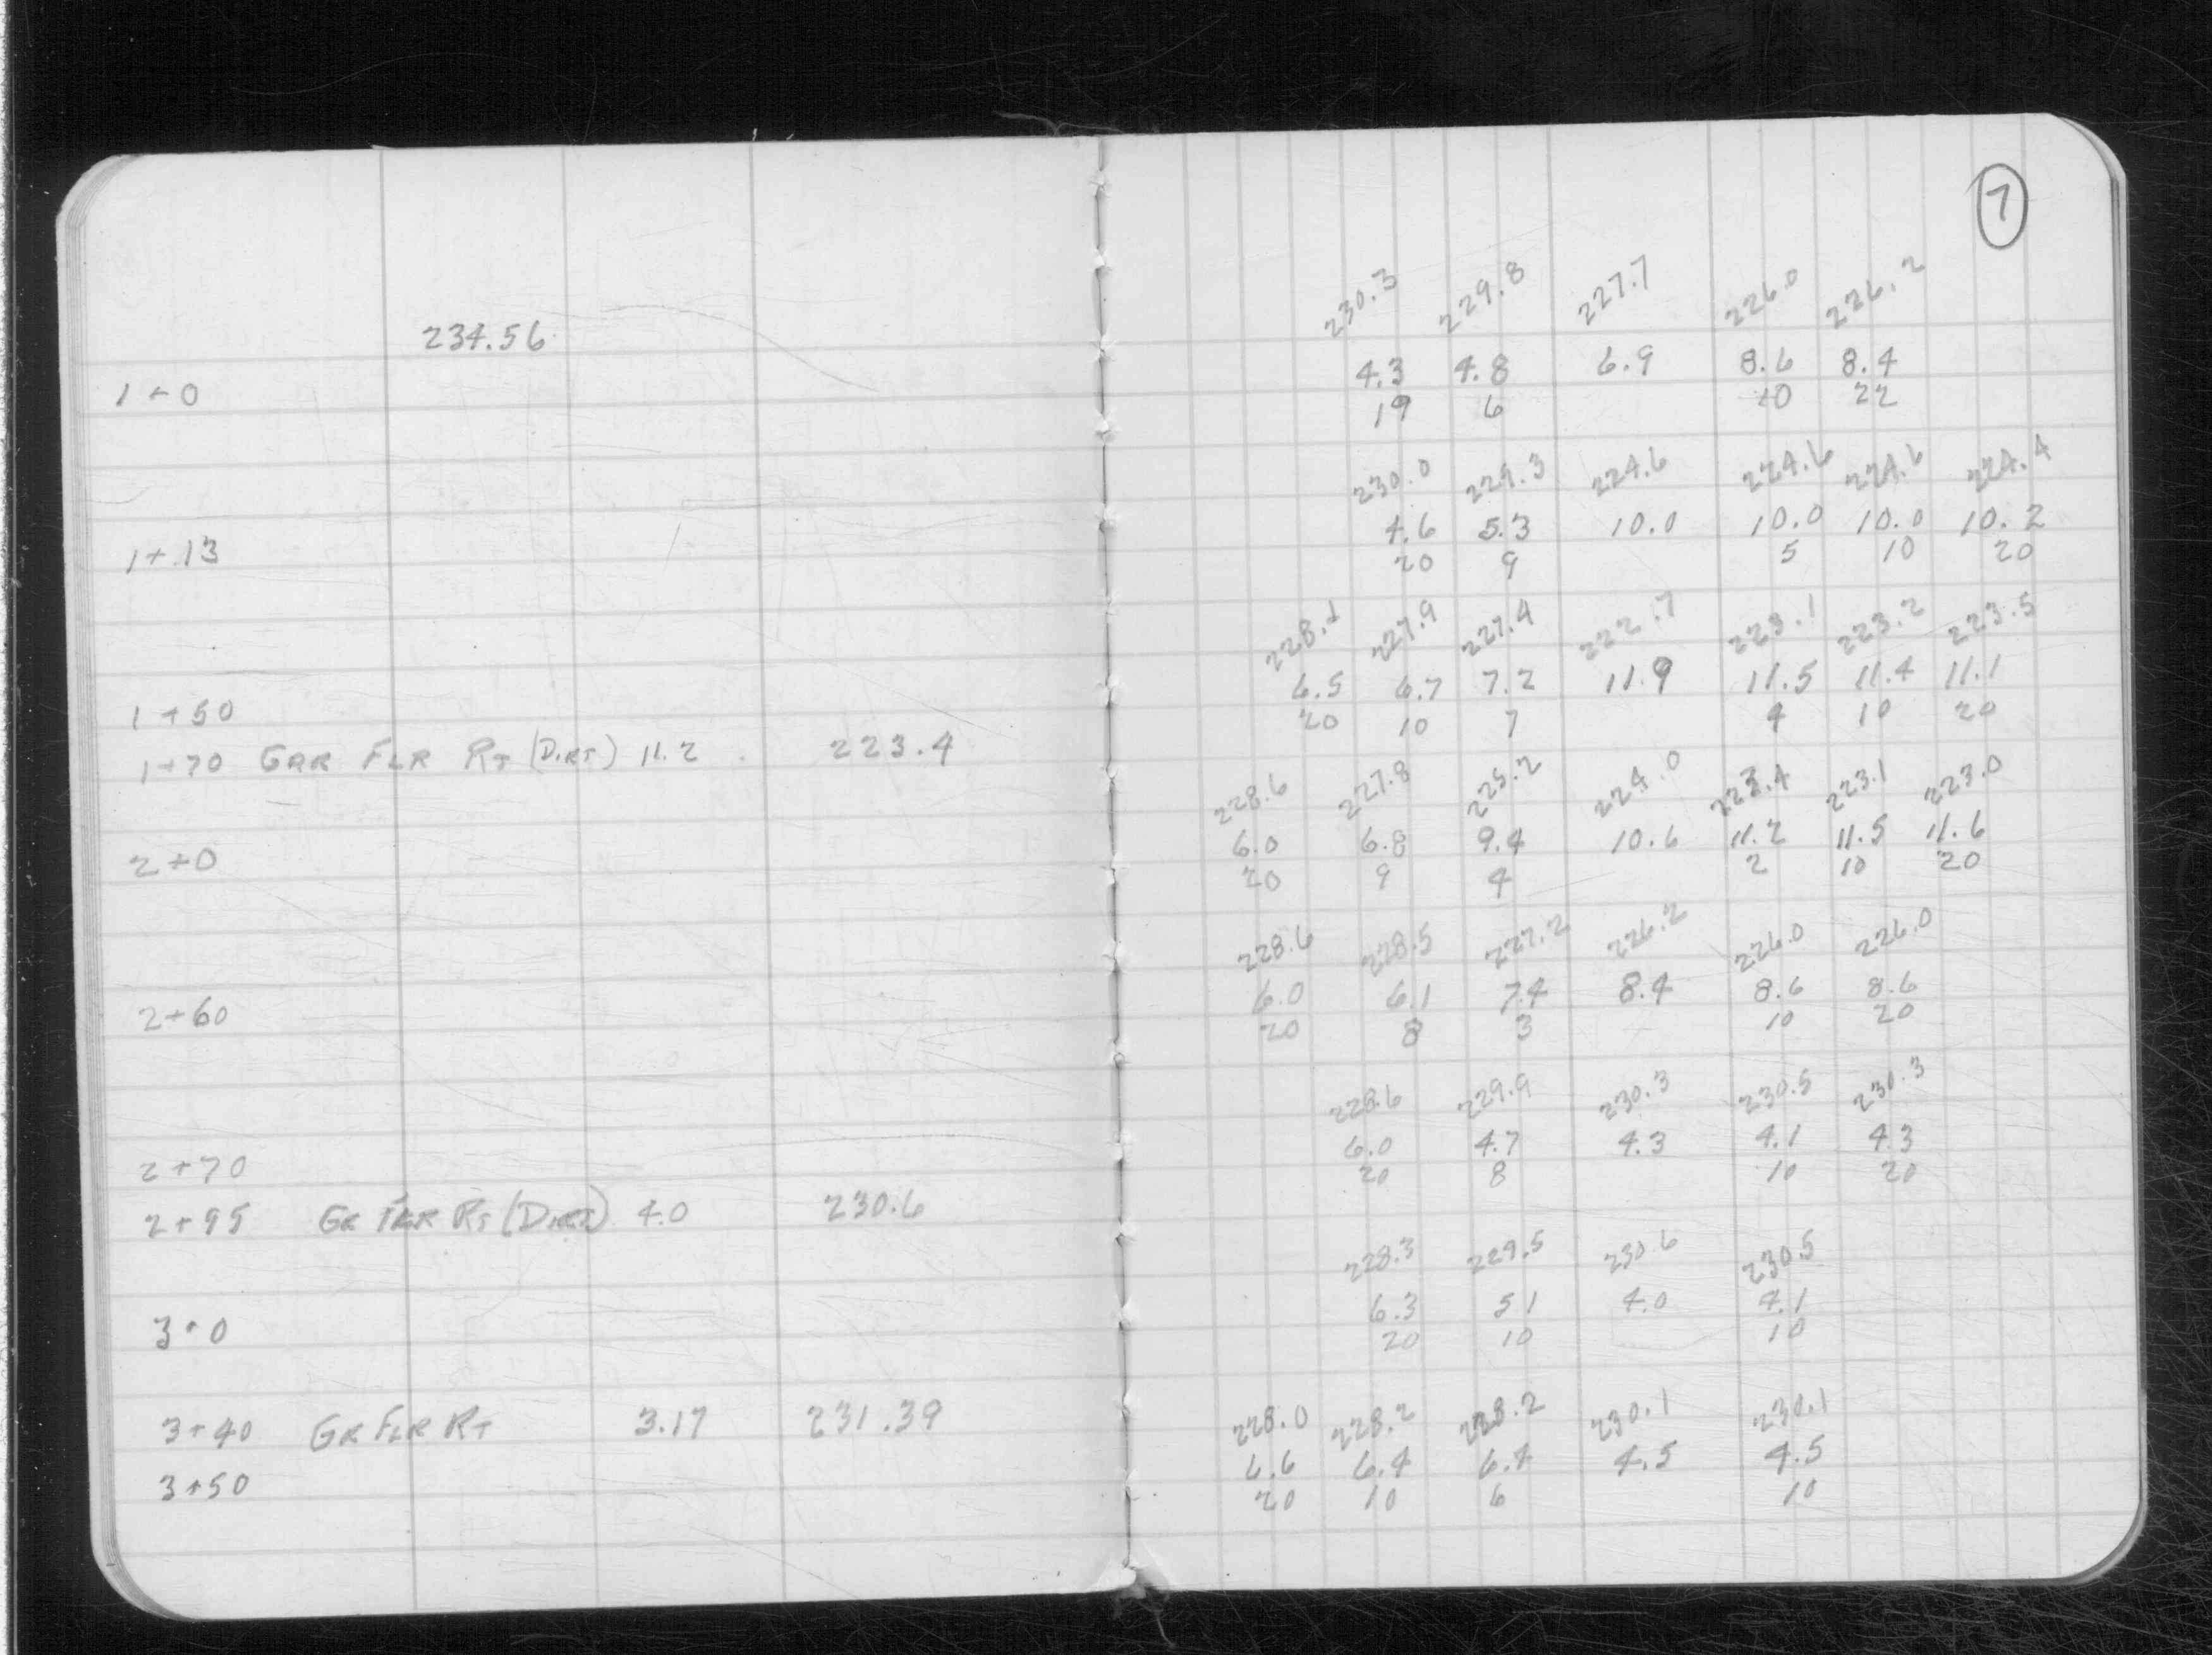 234.56
1+0
1+13
1+50
1+70 GAR FLR RT (DIRT) 11.2 223.4
2+0
2+60
2+70
2+95 GR FLR RT (DIRT) 4.0 230.6
3+0
3+40 GR FLR RT 3.17 231.39
3+50
7
230.3 229.8 227.7 226.0 226.2
4.3 4.8 6.9 8.6 8.4
19 6 10 22
230.0 229.3 224.6 224.6 224.6 224.4
4.6 5.3 10.0 10.0 10.0 10.2
20 9 5 10 20
228.1 227.9 227.4 222.7 223.1 223.2 223.5
6.5 6.7 7.2 11.9 11.5 11.4 11.1
20 10 7 4 10 20
228.6 227.8 225.2 224.0 223.4 223.1 223.0
6.0 6.8 9.4 10.6 11.2 11.5 11.6
20 9 4 2 10 20
228.6 228.5 227.2 226.2 226.0 226.0
6.0 6.1 7.4 8.4 8.6 8.6
20 8 3 10 20
228.6 229.9 230.3 230.5 230.3
6.0 4.7 4.3 4.1 4.3
20 8 10 20
228.3 229.5 230.6 230.5
6.3 5.1 4.0 4.1
20 10 10
228.0 228.2 228.2 230.1 230.1
6.6 6.4 6.4 4.5 4.5
20 10 6 10